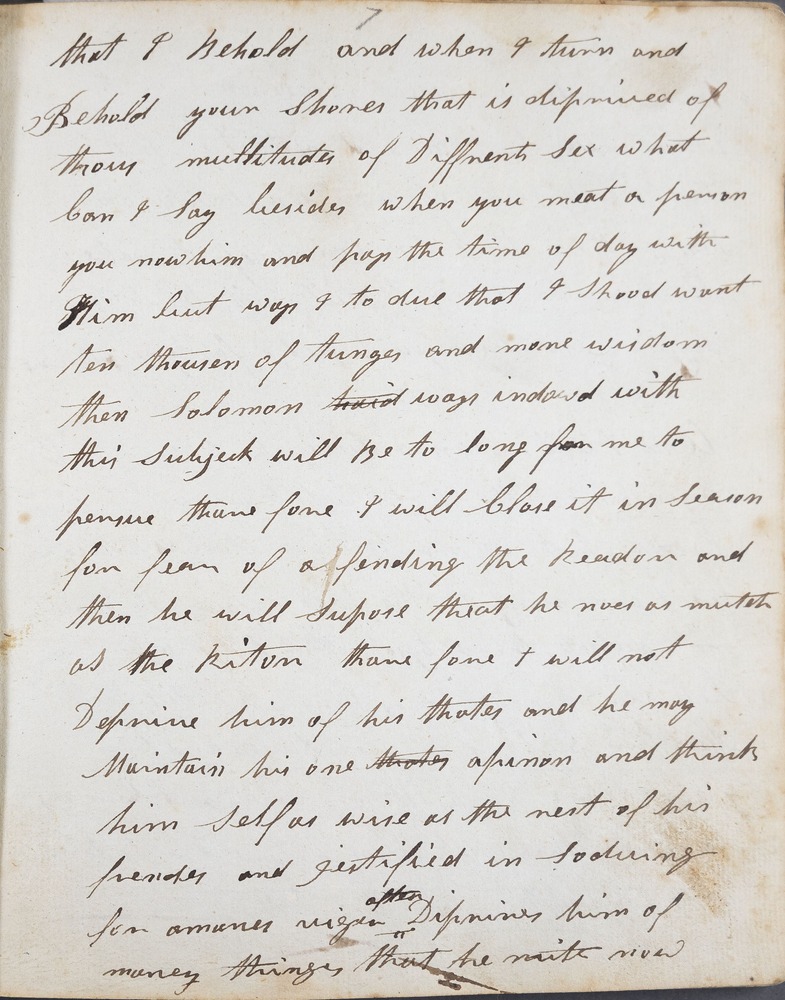 7
that I Behold and when I turn and
Behold your Shores that is diprived of
thous multitudes of Diffrent Sex what
Can I Say besides when you meat a person
you now him and pass the time of day with
Him but way I to due that I Shood want
ten thousen of tunges and more wisdom
then Solomon ways indowd with
this Subjeck will Be to long for me to
persue thare fore I will Close it in Season
for fear of a fending the Reador and
then he will Supose theat he noes as mutch
as the Riton thare fore I will not
Deprive him of his thotes and he may
Maintain his one thotes apinon and think
him Self as wise as the rest of his
frendes and jestified in So duing
for amanes vigor often Diprives him of
maney thinges that he mite now